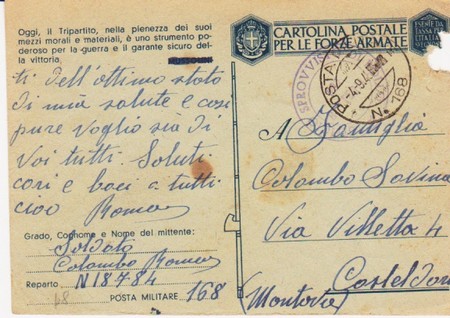 Oggi, il Tripartito, nella pienezza dei suoi
mezzi morali e materiali, è uno strumento po-
deroso per la guerra e il garante sicuro del-
la vittoria.
ti dell'ottimo stato
di mia salute e così
pure voglio sia di
Voi tutti. Saluti
cari e baci a tutti
ciao Romeo
Grado, Cognome e Nome del mittente:
Soldato
Colombo Romeo
Reparto N 18784
POSTA MILITARE 168
68
CARTOLINA POSTALE
PER LE FORZE ARMATE
SPROVVIS
POSTA
N. 168
A Famiglia
Colombo Savina
Via Villetta 4
Casteldar
(Mantova)